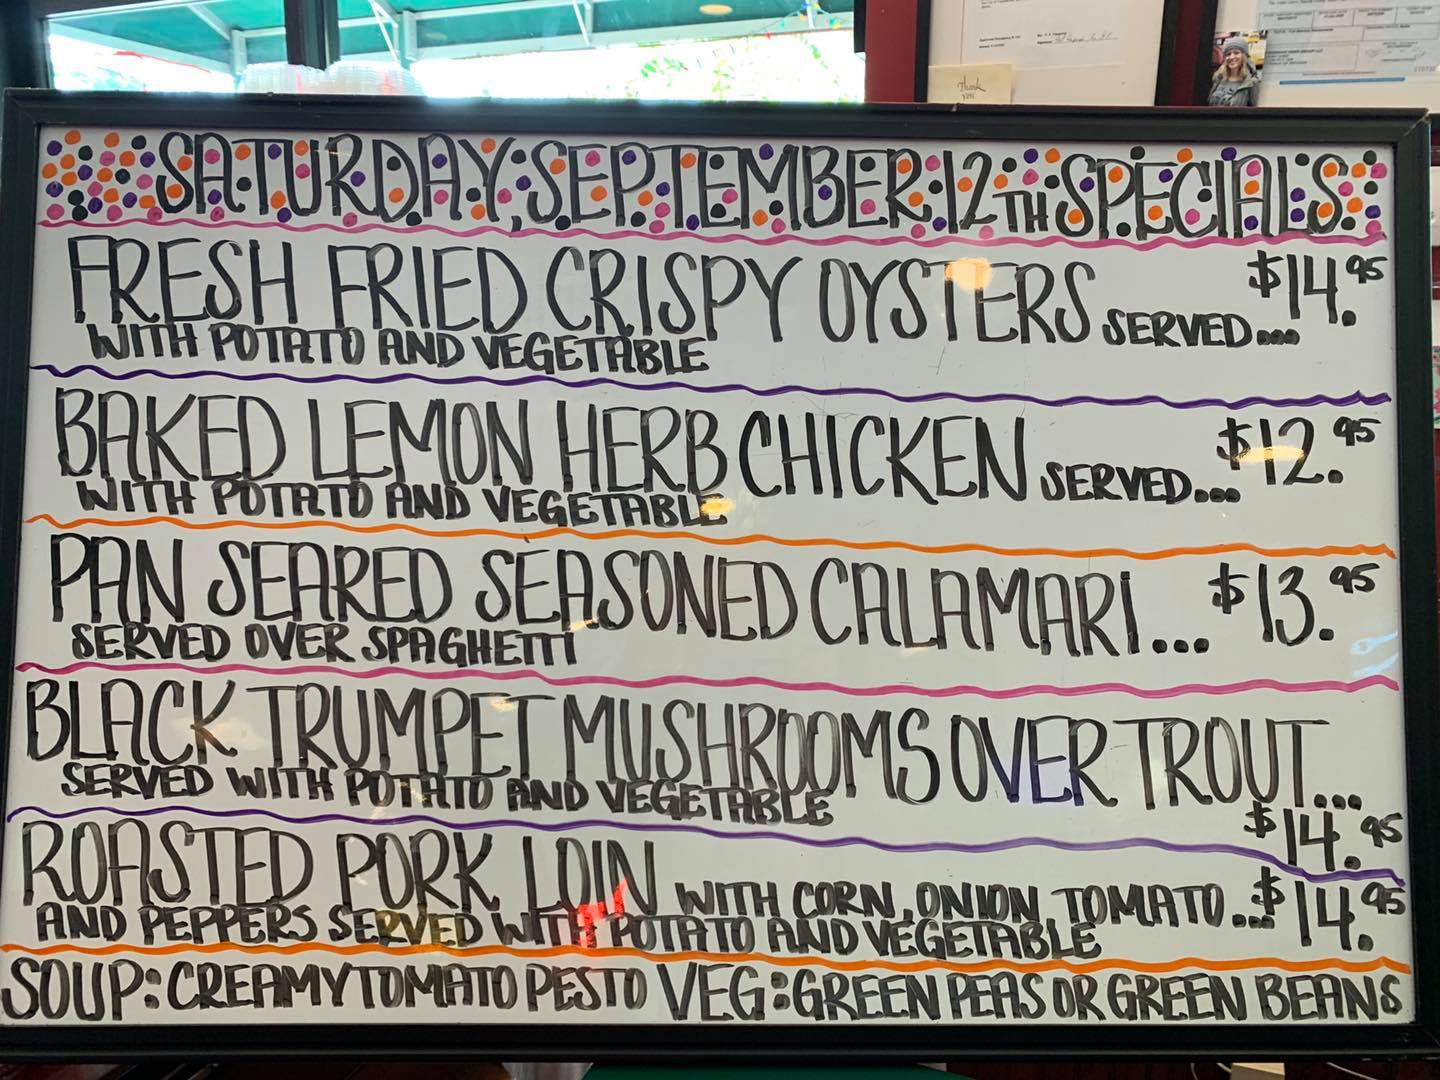 Thank you
SATURDAY, SEPTEMBER 12TH SPECIALS:
FRESH FRIED CRISPY OYSTERS SERVED... $14.95
WITH POTATO AND VEGETABLE
BAKED LEMON HERB CHICKEN SERVED... $12.95
WITH POTATO AND VEGETABLE
PAN SEARED SEASONED CALAMARI... $13.95
SERVED OVER SPAGHETTI
BLACK TRUMPET MUSHROOMS OVER TROUT...
SERVED WITH POTATO AND VEGETABLE
$14.95
ROASTED PORK LOIN WITH CORN, ONION, TOMATO... $14.95
AND PEPPERS SERVED WITH POTATO AND VEGETABLE
SOUP: CREAMY TOMATO PESTO VEG: GREEN PEAS OR GREEN BEANS